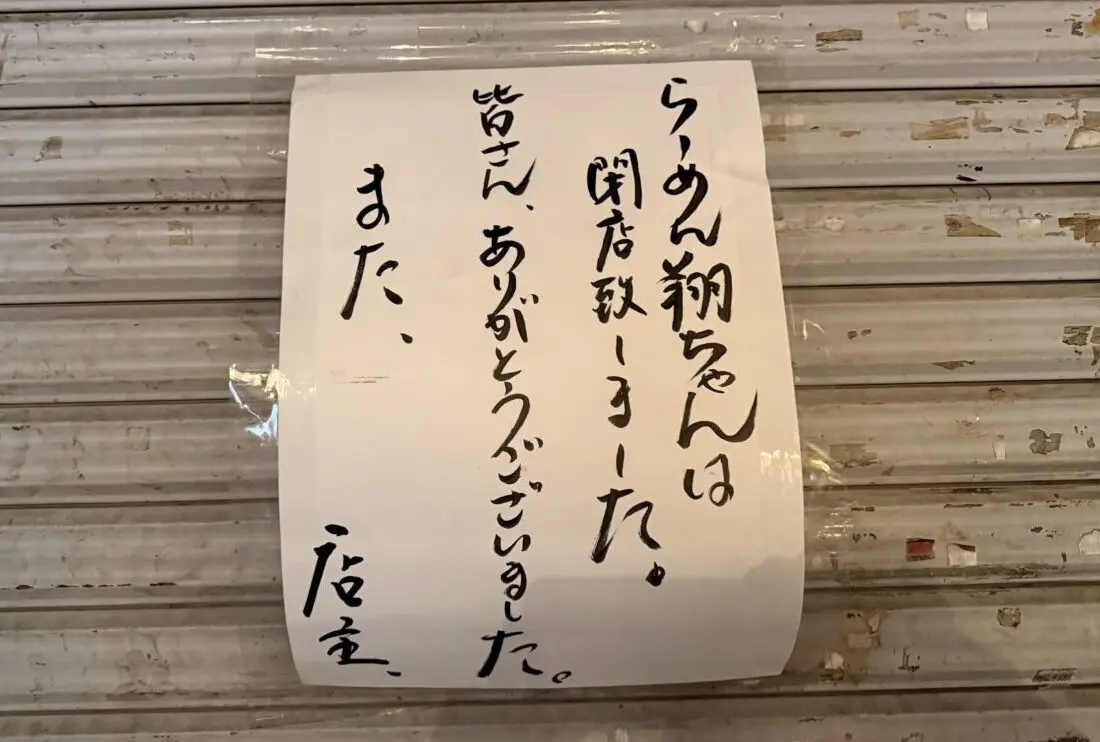 らーめん翔ちゃんは
閉店致しました。
皆さん、ありがとうございました。
また、
店主、